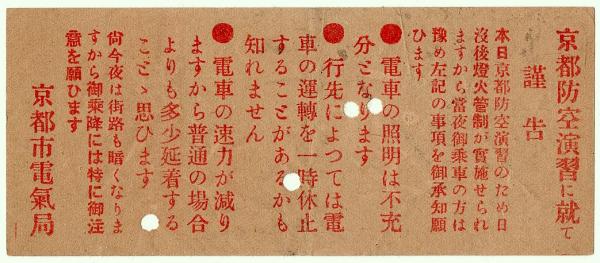 京都防空演習に就て
謹告
本日京都防空演習のため日
沒後燈火管制が實施せられ
ますから當夜御乘車の方は
豫め左記の事項を御承知願
ひます
●電車の照明は不充
分となります
●行先によつては電
車の運轉を一時休止
することがあるかも
知れません
●電車の速力が減り
ますから普通の場合
よりも多少延着する
ことゝ思ひます
尙今夜は街路も暗くなりま
すから御乘降には特に御注
意を願ひます
京都市電氣局